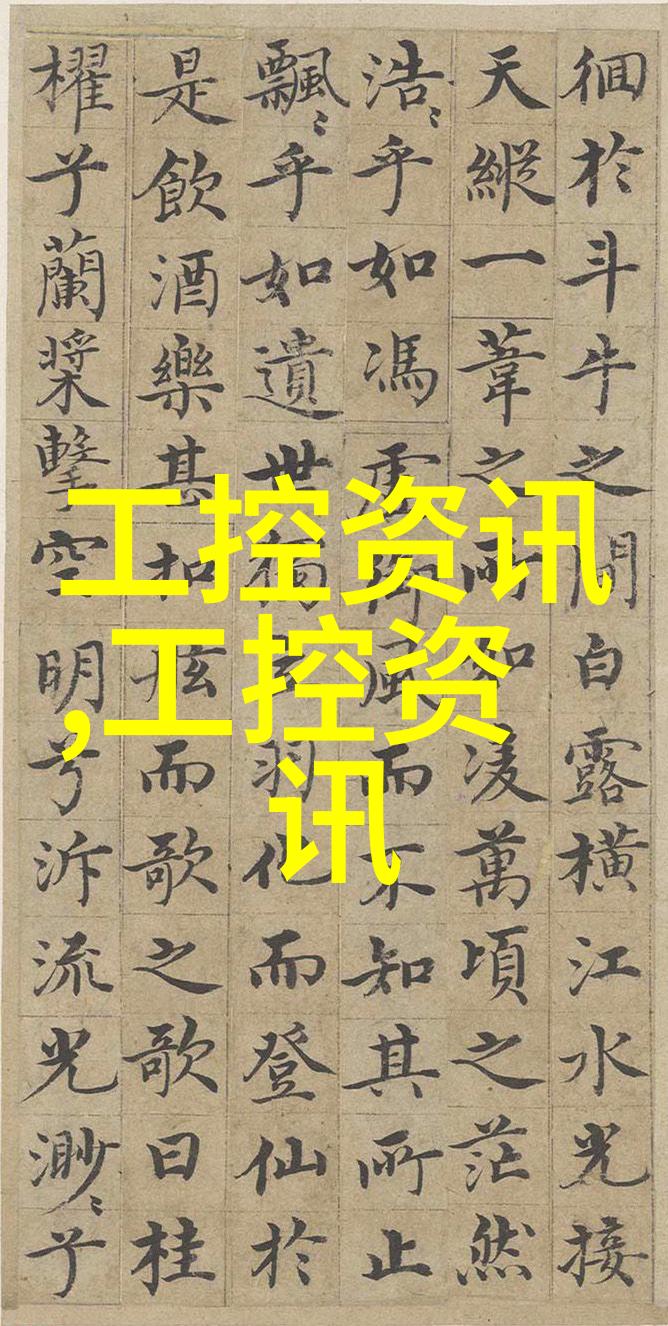 徊於斗牛之間白露橫江水光接
天縱一葦之所如凌萬頃之茫然
浩〻乎如馮虛御風而不知其所止
飄〻乎如遺世獨立羽化而登仙於
是飲酒樂甚扣舷而歌之歌曰桂
櫂兮蘭槳擊空明兮泝流光渺〻兮
工控资讯
,工控资
讯